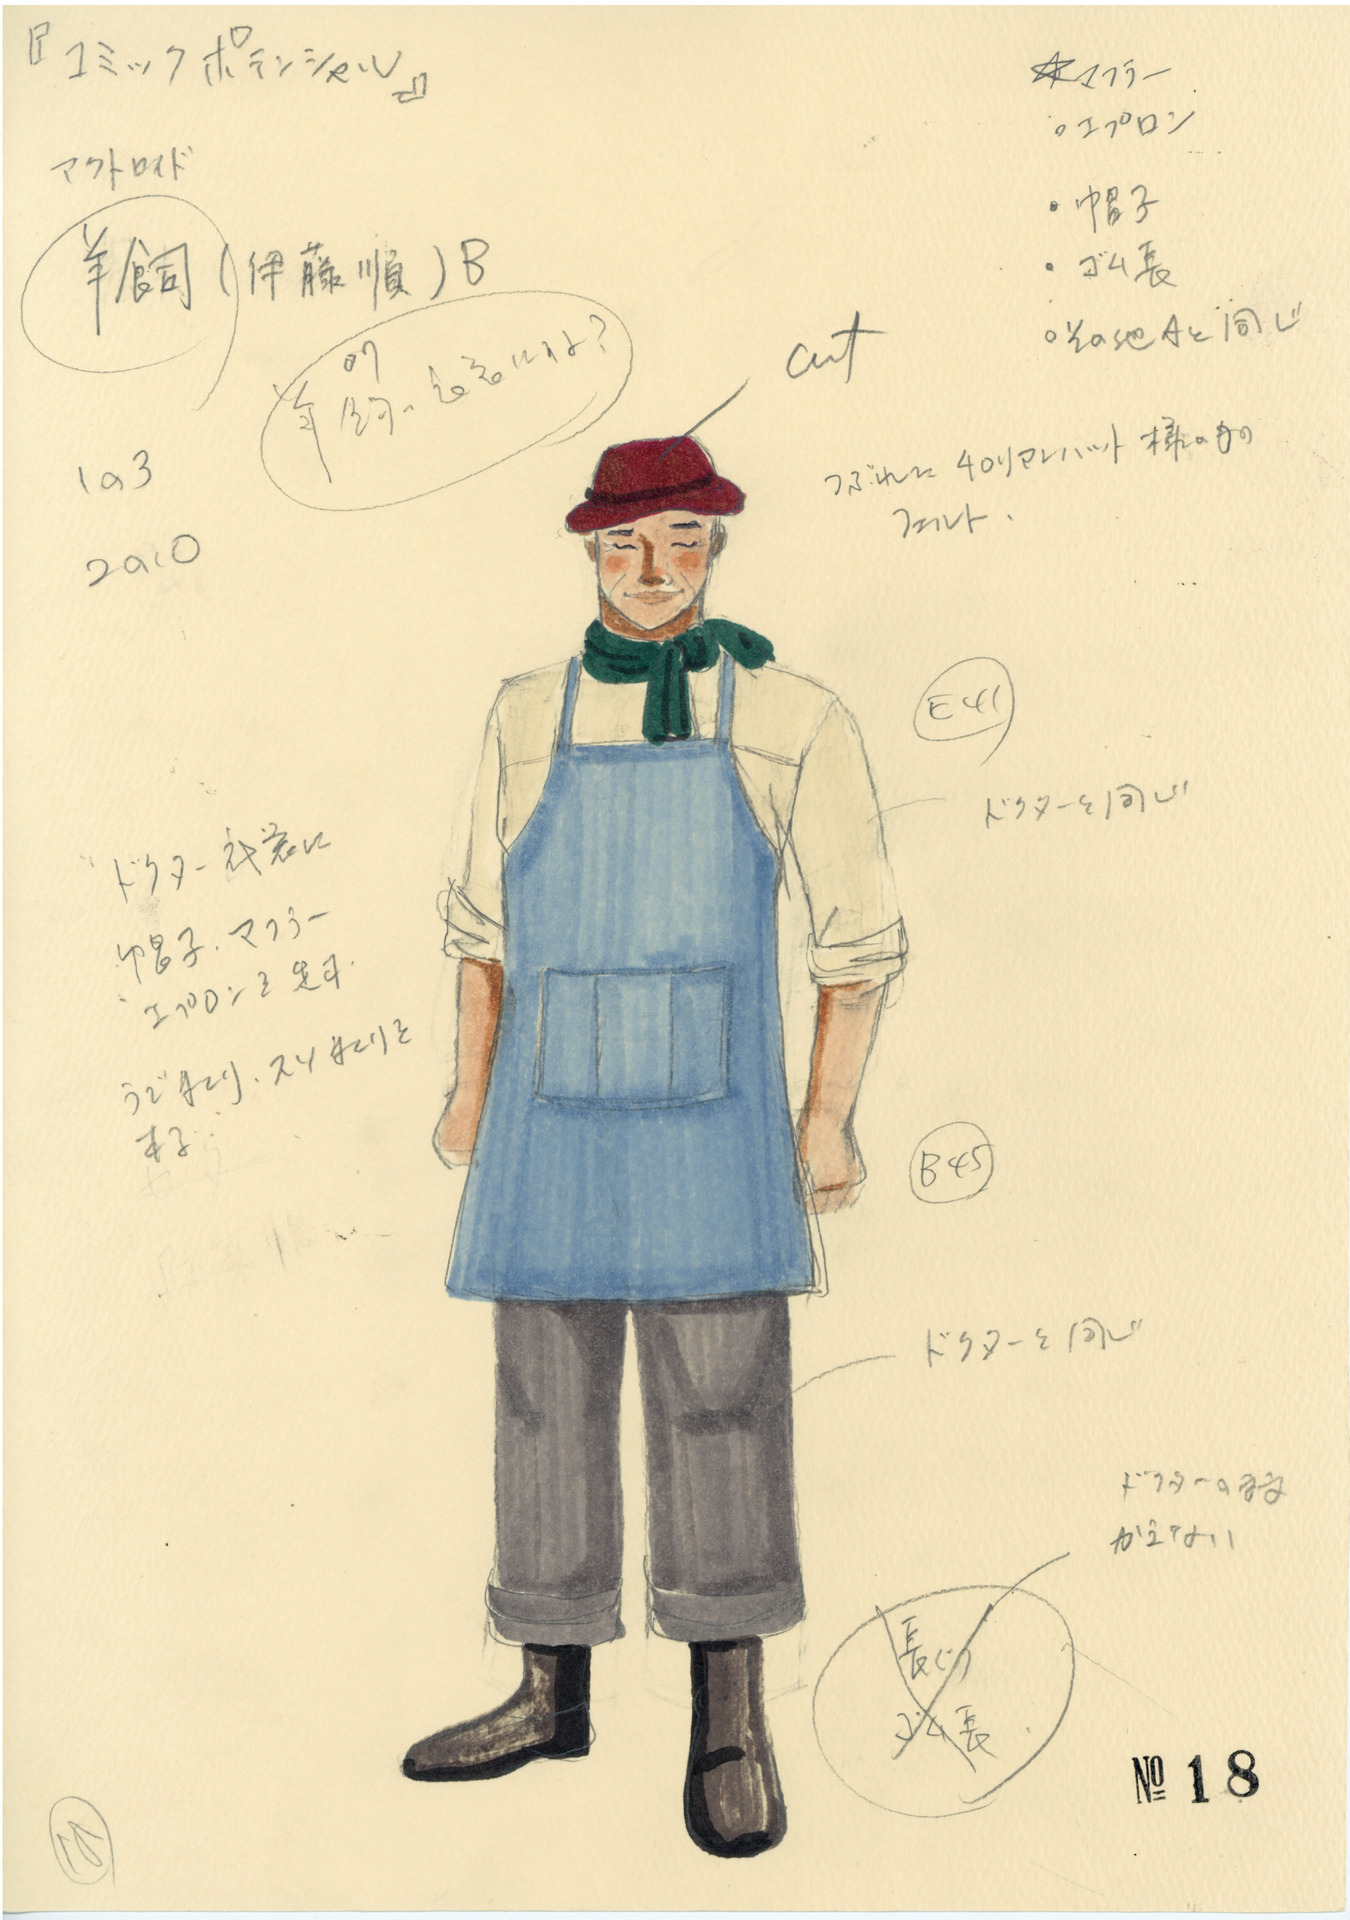 『コミックポテンシャル』
アクトロイド
羊飼(伊藤順)B
1の3
2の10
☆マフラー
○エプロン
・帽子
・ゴム長
○その他Aと同じ
cut
つぶれた チロリアンハット 様のもの
フェルト.
E41
ドクターと同じ
ドクター衣裳に
帽子.マフラー
エプロンを
うでまくり.スソまくりを
する
B45
ドクターと同じ
ドクターのまま
かえない
長ぐつ
ゴム長
№18